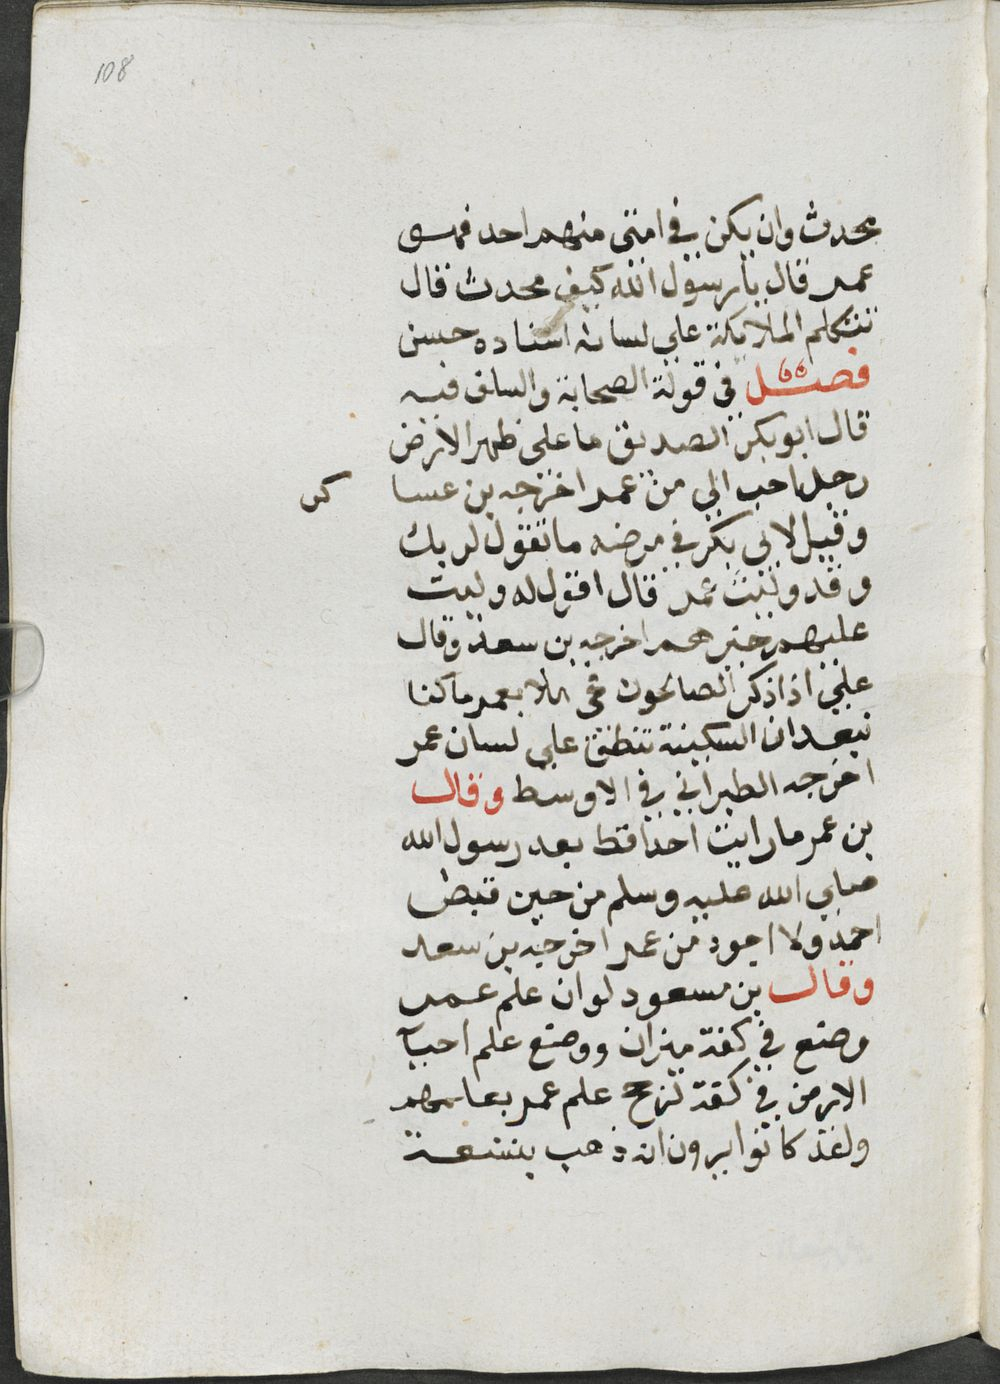 108
محدث وان يكن في امتي منهم احد فهو
عمر قال يا رسول الله كيف محدث قال
تتكلم الملائكة على لسانه اسناده حسن
فصل في قولة الصحابة والسلف فيه
قال ابو بكر الصديق ما على ظهر الارض
رجل احب الي من عمر اخرجه بن عسا كر
وقيل لابي بكر في مرضه ما تقول لربك
وقد وليت عمر قال اقول له وليت
عليهم خيرهم اخرجه بن سعد وقال
علي اذا ذكر الصالحون فحي هلا بعمر ما كنا
نبعد ان السكينة تنطق على لسان عمر
اخرجه الطبراني في الاوسط وقال
بن عمر ما رايت احدا قط بعد رسول الله
صلي الله عليه وسلم من حين قبض
احد ولا اجود من عمر اخرجه بن سعد
وقال بن مسعود لو ان علم عمر
وضع في كفة ميزان ووضع علم احيآ
الارض في كفة لرجح علم عمر بعلمهم
ولقد كانوا يرون انه ذهب بتسعة